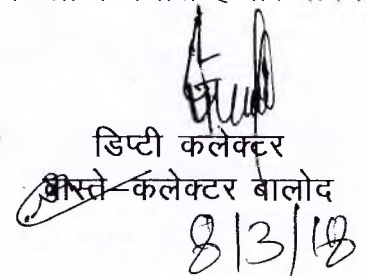 डिप्टी कलेक्टर
वास्ते-कलेक्टर बालोद
8/3/18